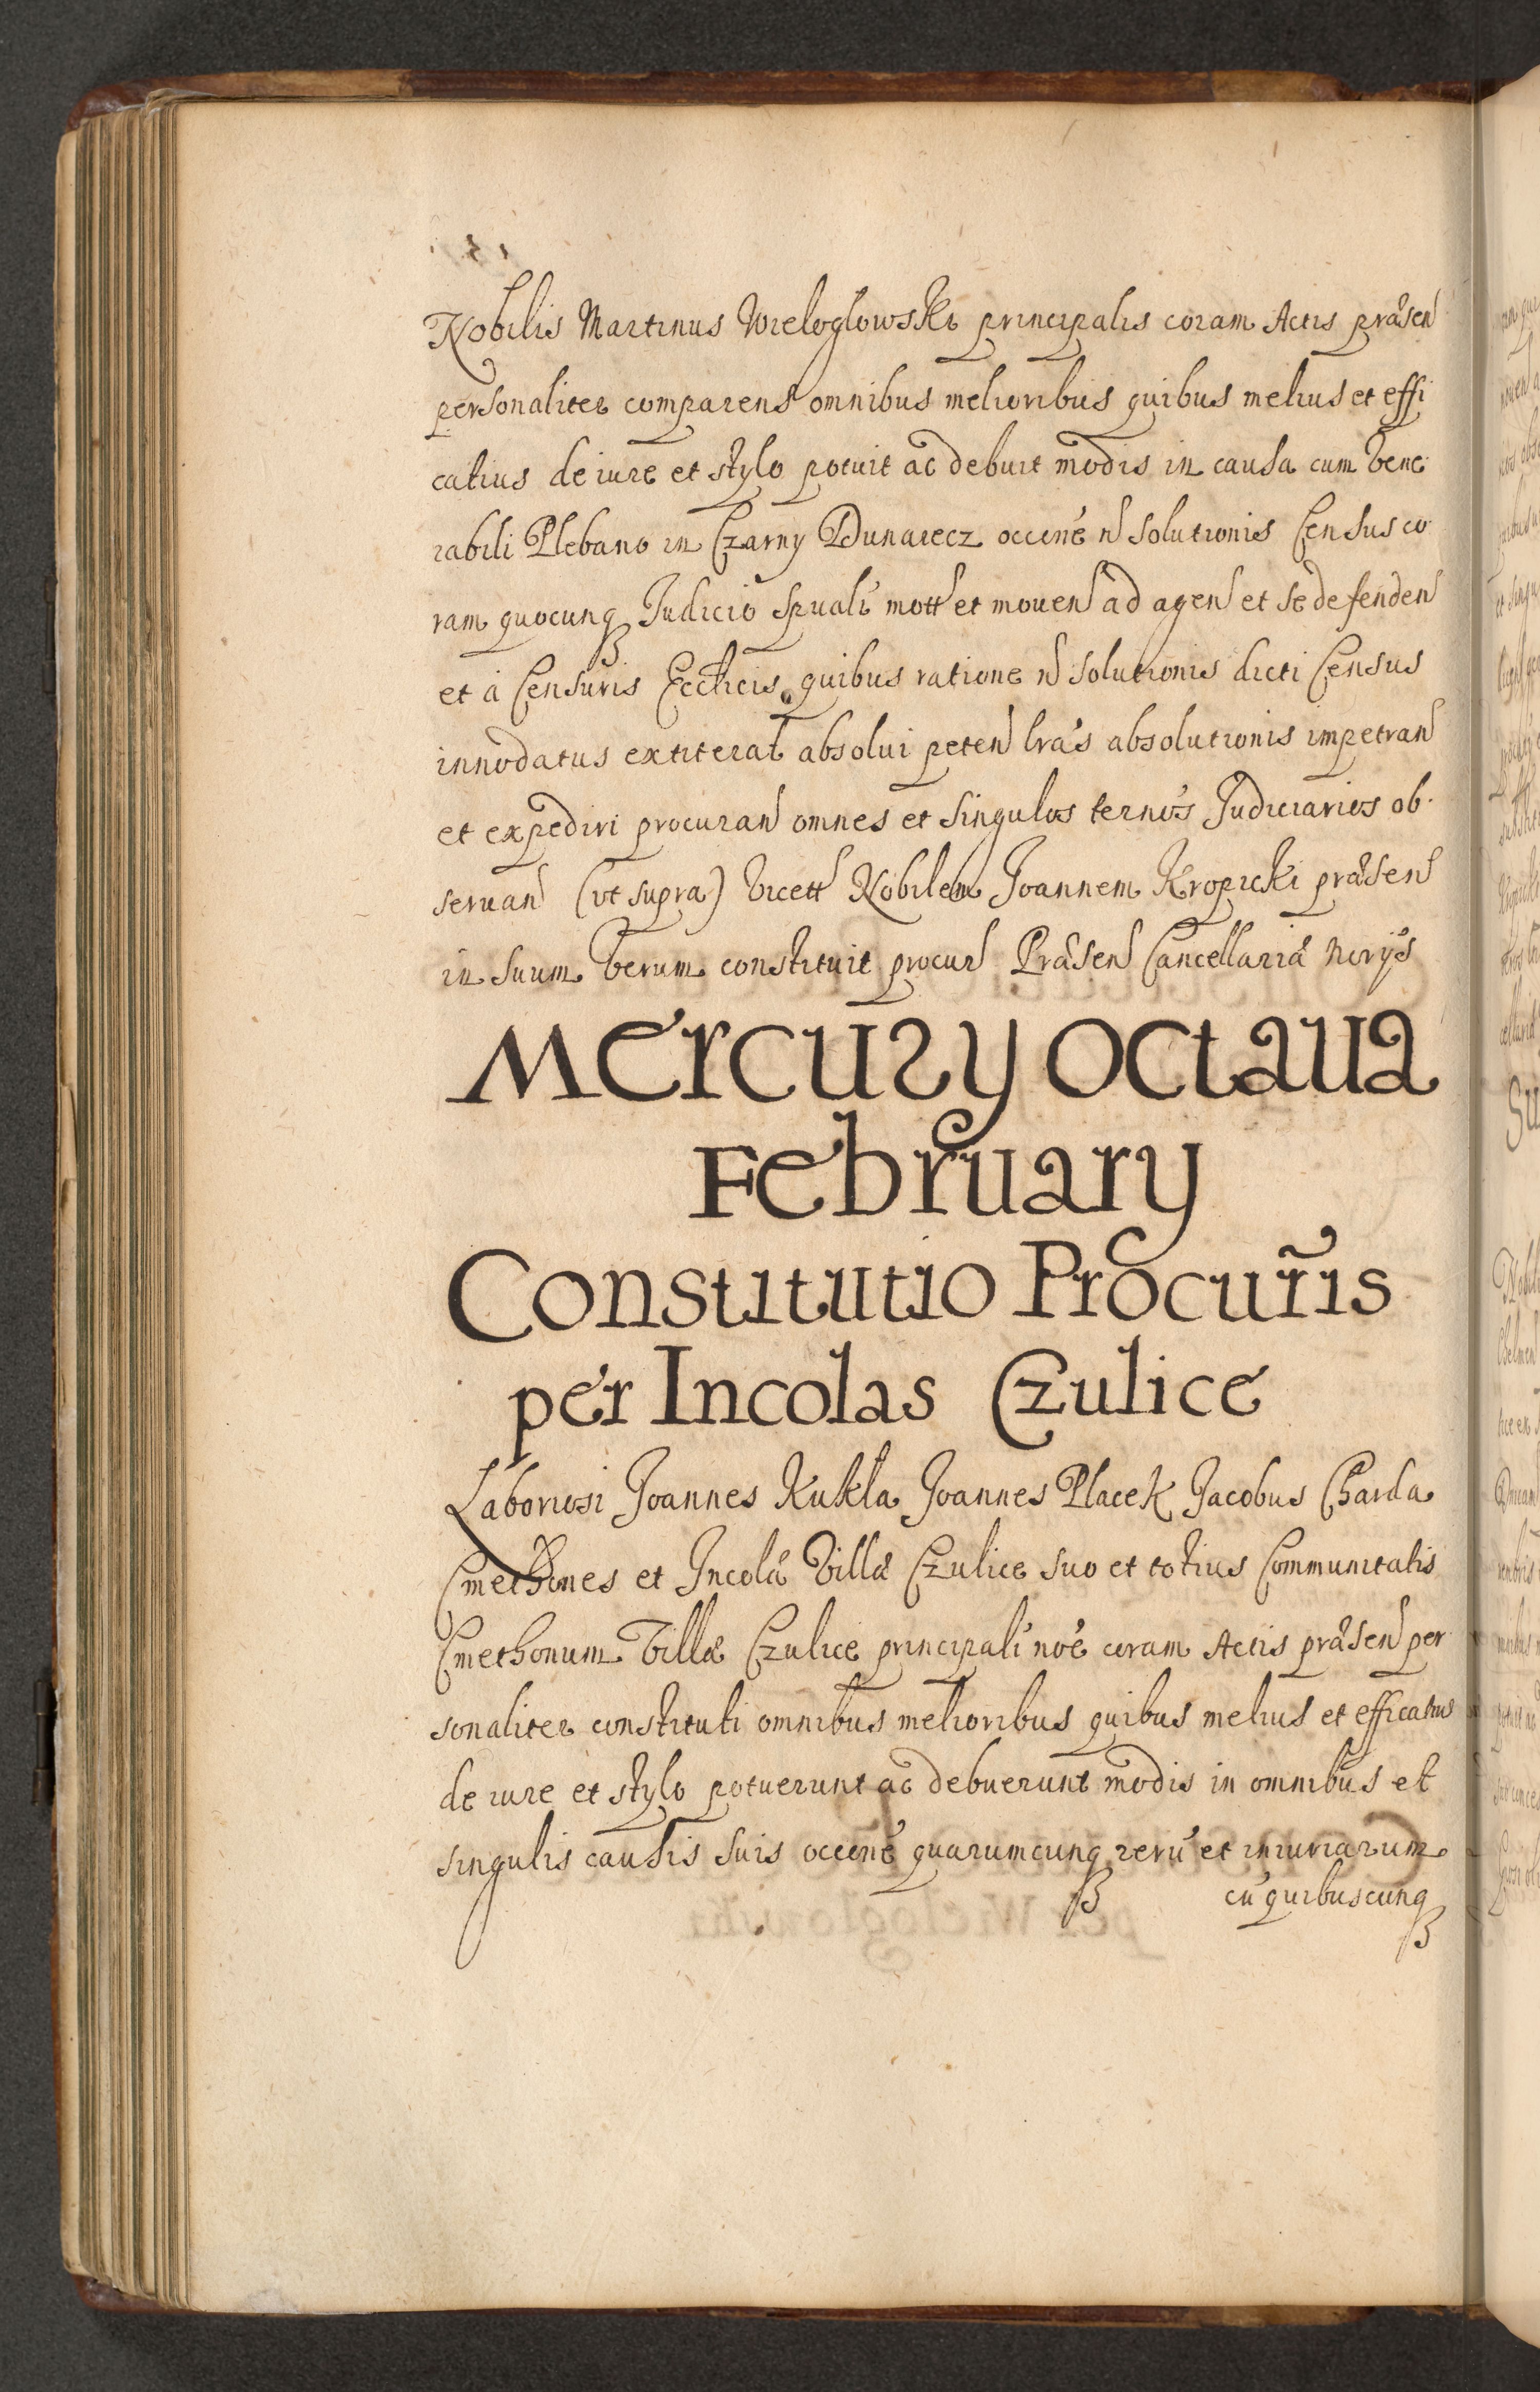 Nobilis Martinus Wieloglowski principalis coram Actis præsen
personaliter comparens omnibus melioribus quibus melius et effi
catius de iure et stylo potuit ac debuit modis in causa cum Vene
rabili Plebano in Czarny Dunaiecz occnē n solutionis Census co
ram quocunq Judicio Spuali mott et mouen ad agen et se defenden
et à Censuris Ecclicis quibus ratione n solutionis dicti Census
innodatus extiterat absolui peten lras absolutionis impetran
et expediri procuran omnes et singulos ternos Judiciarios ob
seruan (vt supra) Vicett Nobilem Joannem Kropicki præsen
in suum Verum constituit procur Præsen Cancellariæ Norys
Mercury octaua
February
Constitutio Procuris
per Incolas Czulice
Laboriosi Joannes Kukla Joannes Placek Jacobus Charda
Cmethones et Incolæ Villæ Czulice suo et totius Communitatis
Cmethonum Villæ Czulice principali noē coram Actis præsen per
sonaliter constituti omnibus melioribus quibus melius et efficatius
de iure et stylo potuerunt ac debuerunt modis in omnibus et
singulis causis suis occnē quarumcunq rerū et iniuriarum
cū quibuscunq